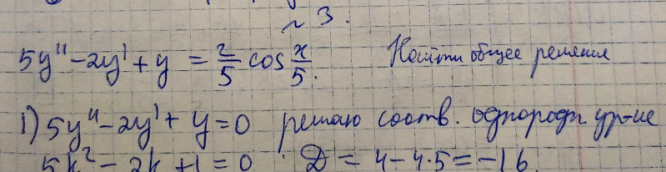 № 3.
5y'' - 2y' + y = 2/5 cos x/5. Найти общее решение
1) 5y'' - 2y' + y = 0 решаю соотв. однородн ур-ие
5k² - 2k + 1 = 0. D = 4 - 4·5 = -16